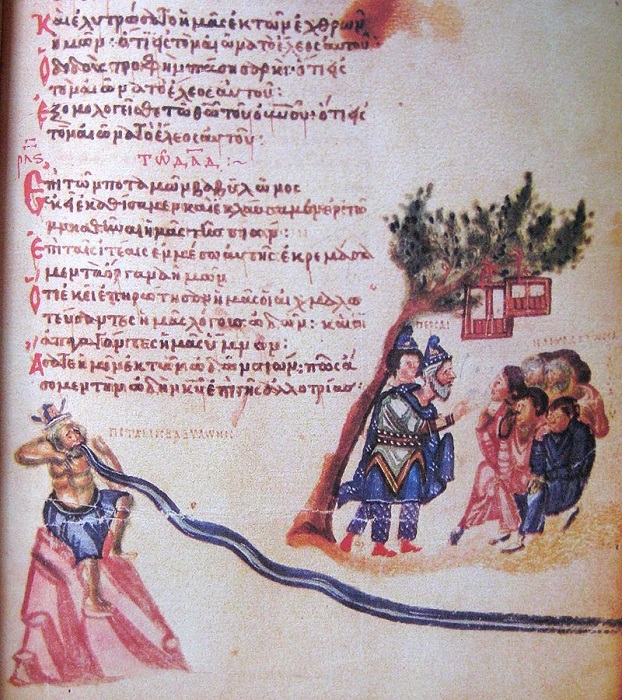 Καὶ ἐλυτρώσατο ἡμᾶς ἐκ τῶν ἐχθρῶν
ἡμῶν· ὅτι εἰς τὸν αἰῶνα τὸ ἔλεος αὐτοῦ·
Ὁ διδοὺς τροφὴν πάσῃ σαρκί· ὅτι εἰς
τὸν αἰῶνα τὸ ἔλεος αὐτοῦ:
Ἐξομολογεῖσθε τῶ θω τοῦ οὐνου: ὅτι εἰς
τὸν αἰῶνα τὸ ἔλεος αὐτοῦ:
ρλς τῶ δαδ :~
Ἐπὶ τῶν ποταμῶν βαβυλῶνος
ἐκεῖ ἐκαθίσαμεν καὶ ἐκλαύσαμεν ἐν τῶ
μνησθῆναι ἡμᾶς τῆς σιών:
Ἐπὶ ταῖς ἰτέαις ἐν μέσω αὐτῆς ἐκρεμάσα
μεν τὰ ὄργανα ἡμῶν
Ὅτι ἐκεῖ ἐπηρώτησαν ἡμᾶς οἱ αἰχμαλω
τεύσαντες ἡμᾶς λόγους ὠδῶν: καὶ οἱ
ἀπαγαγόντες ἡμᾶς ὕμνον:
Ἄσατε ἡμῖν ἐκ τῶν ὠδῶν σιών: πῶς ἄ
σομεν τὴν ὠδὴν κυ ἐπὶ γῆς ἀλλοτρίας:
ΠΕΡΣΑΙ